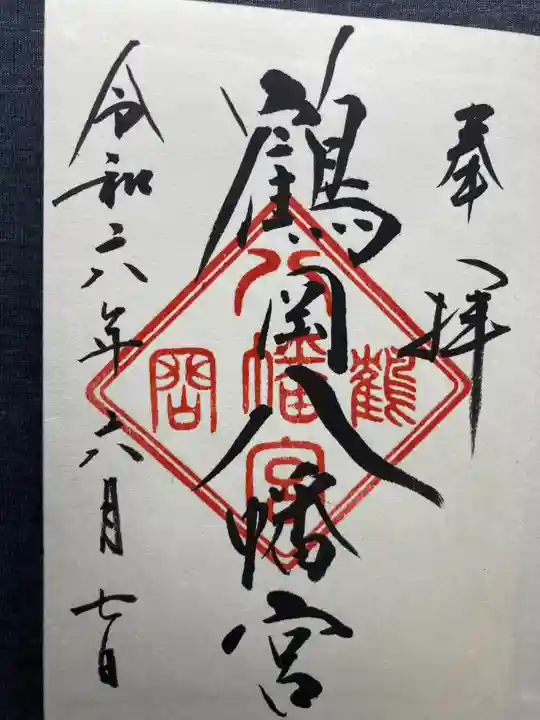 奉拝
鶴岡八幡宮
鶴
八幡宮
岡
令和六年六月七日